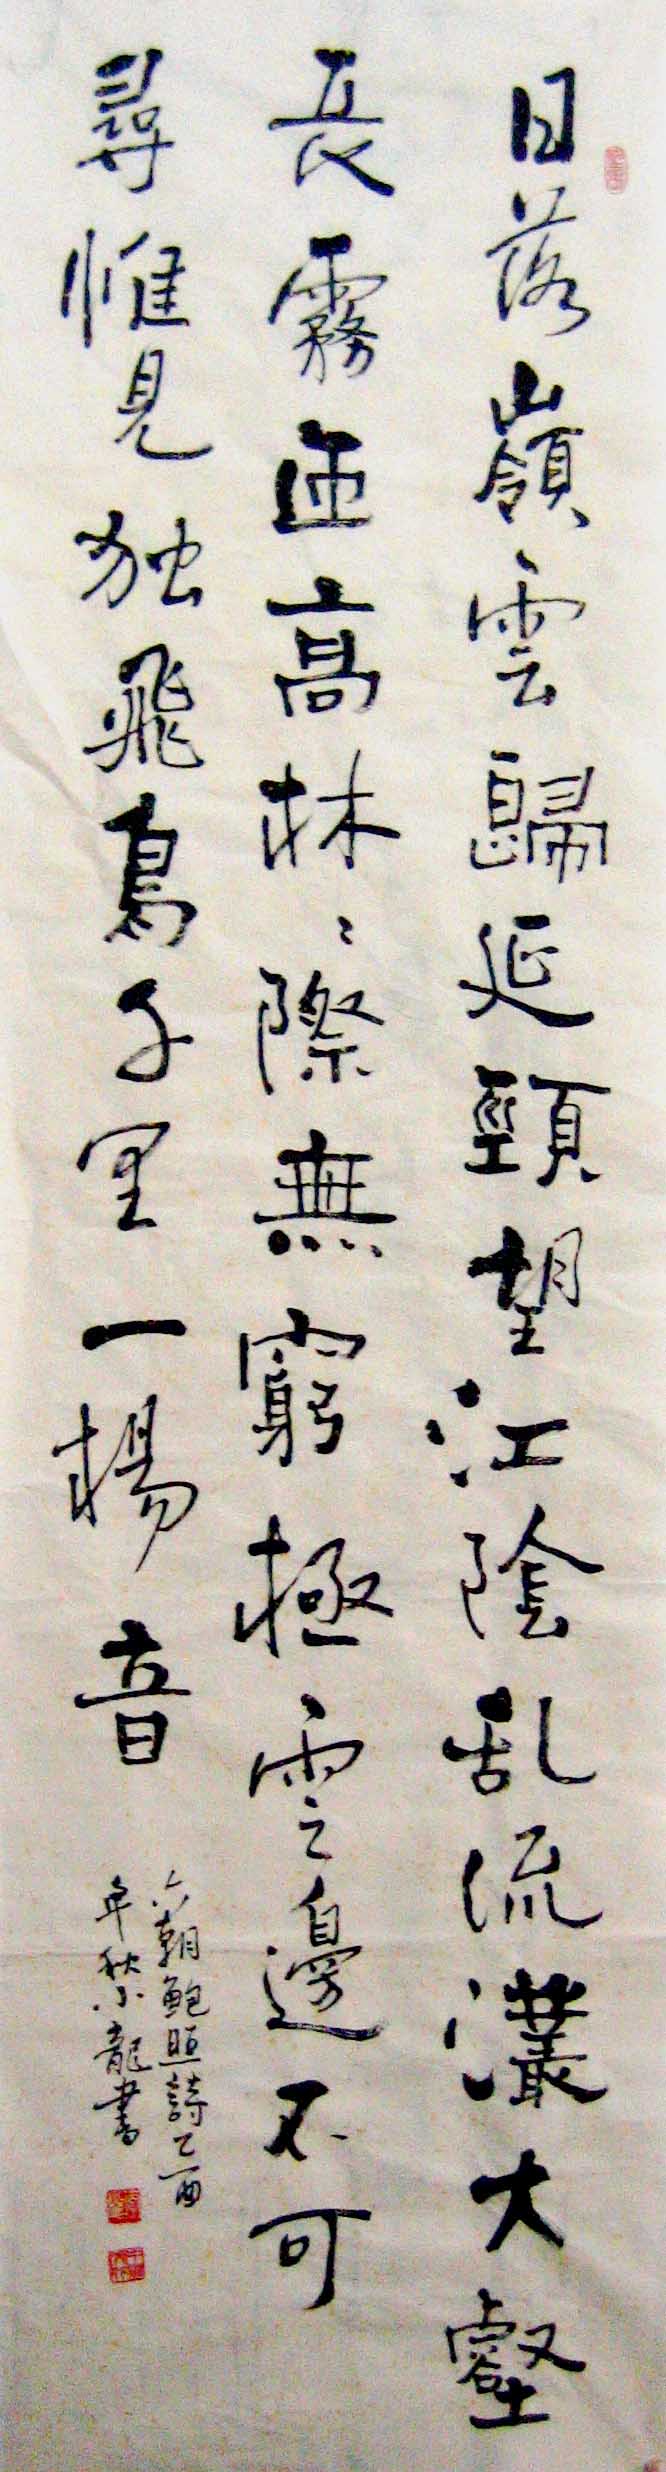 日落嶺雲歸延頸望江陰乱流灇大壑
長霧迊高林〻際無窮極雲邊不可
尋惟見独飛鳥千里一揚音
六朝鮑照詩乙酉
年秋小龍書